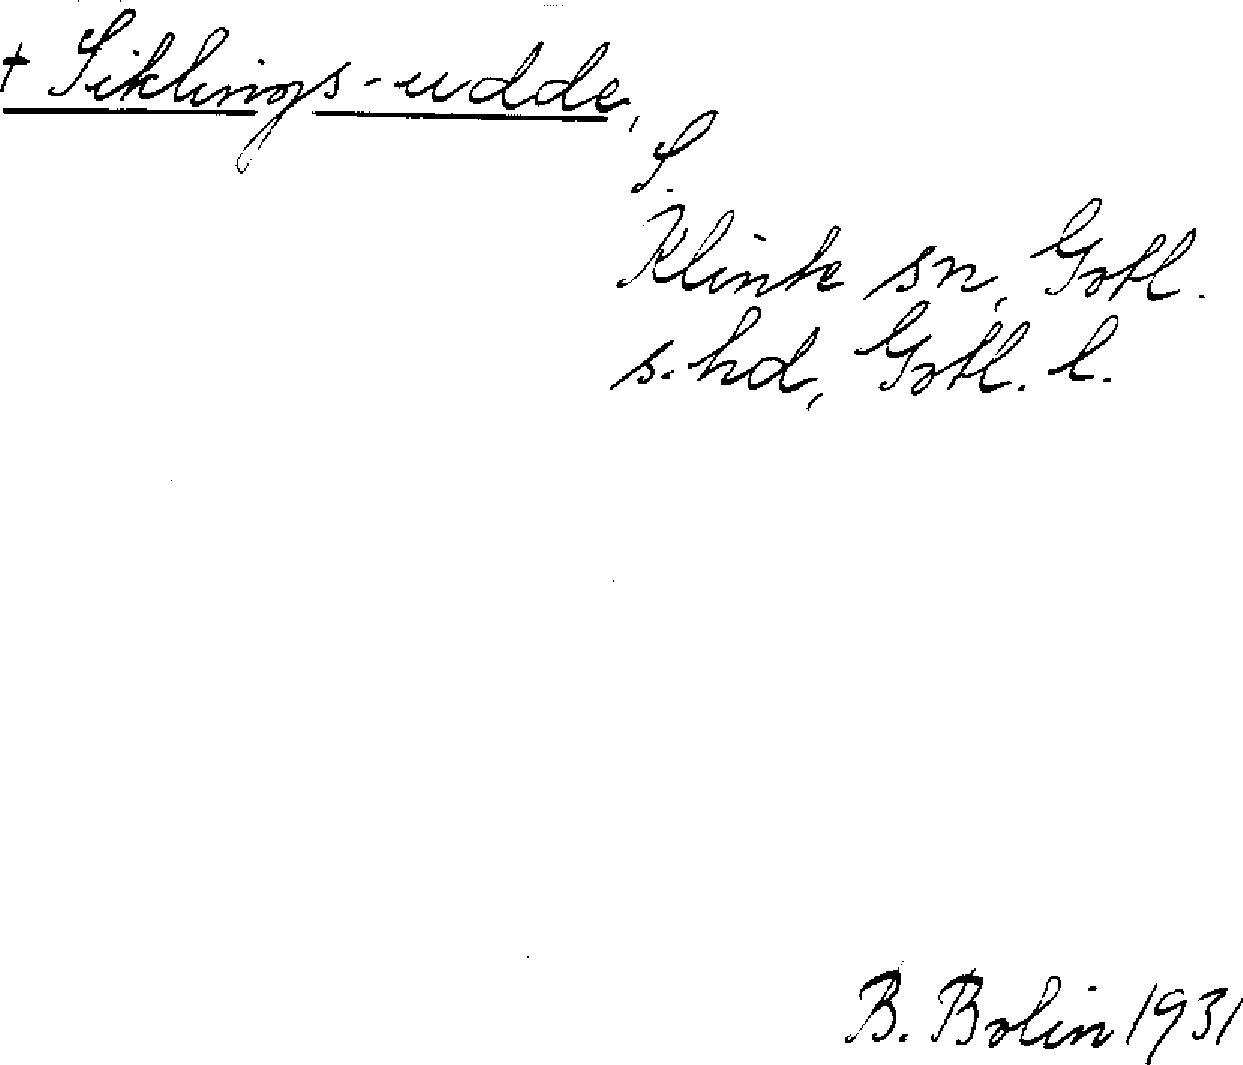 + Siklings-udde,
S.
Klinte sn, Gotl.
s. hd, Gotl. l.
B. Bolin 1931